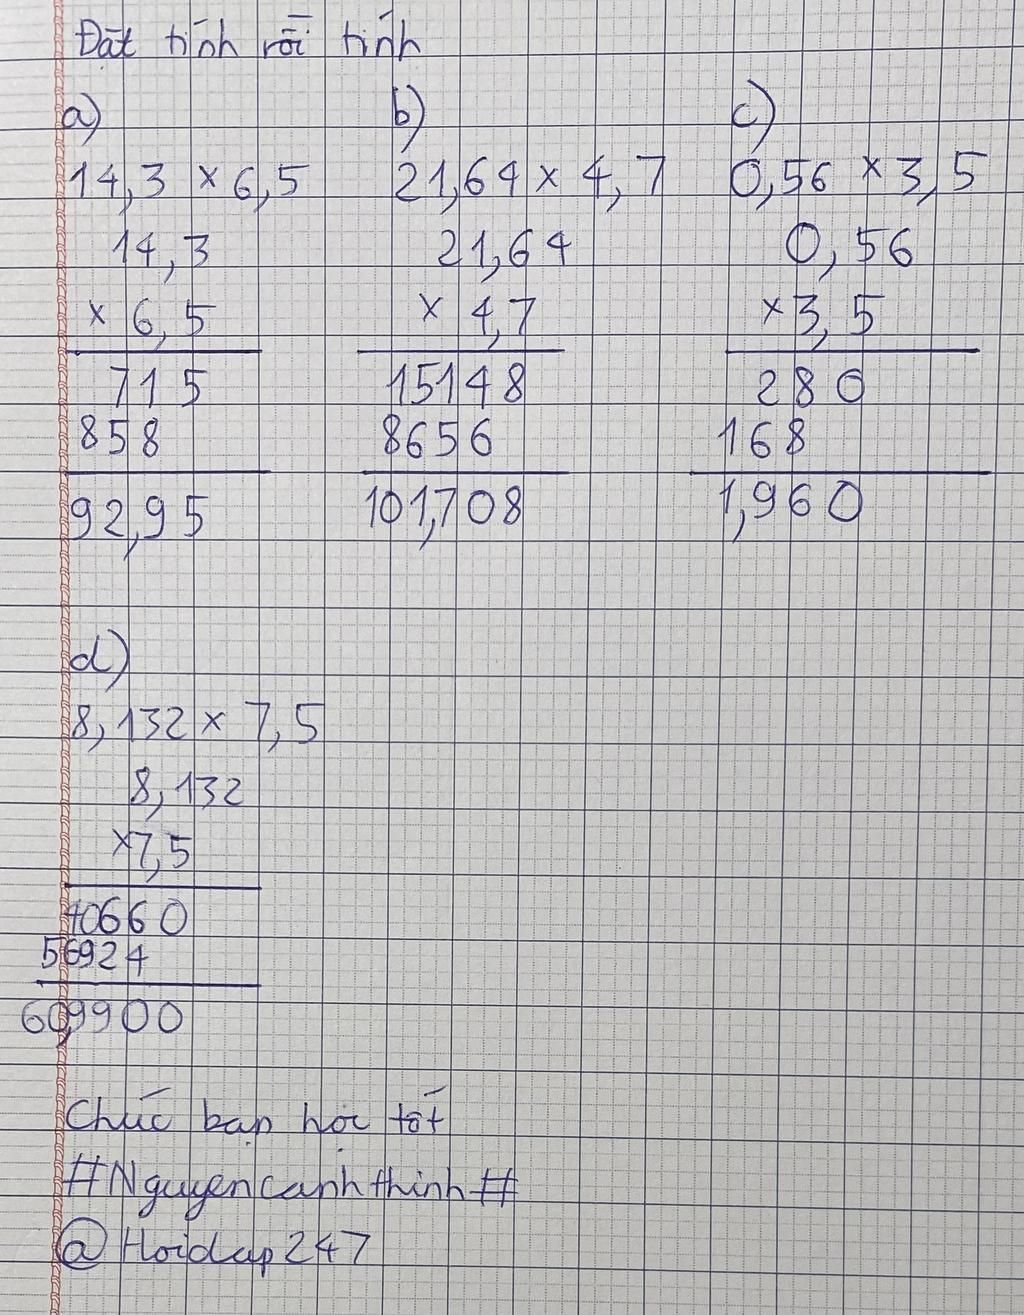 Đặt tính rồi tính
a) b) c)
14,3 × 6,5 21,64 × 4,7 0,56 × 3,5
14,3 21,64 0,56
× 6,5 × 4,7 × 3,5
715 15148 280
858 8656 168
92,95 101,708 1,960
d)
8,132 × 7,5
8,132
×7,5
40660
56924
60,9900
Chúc bạn học tốt
#Nguyencanhthinh#
@Hoidap247